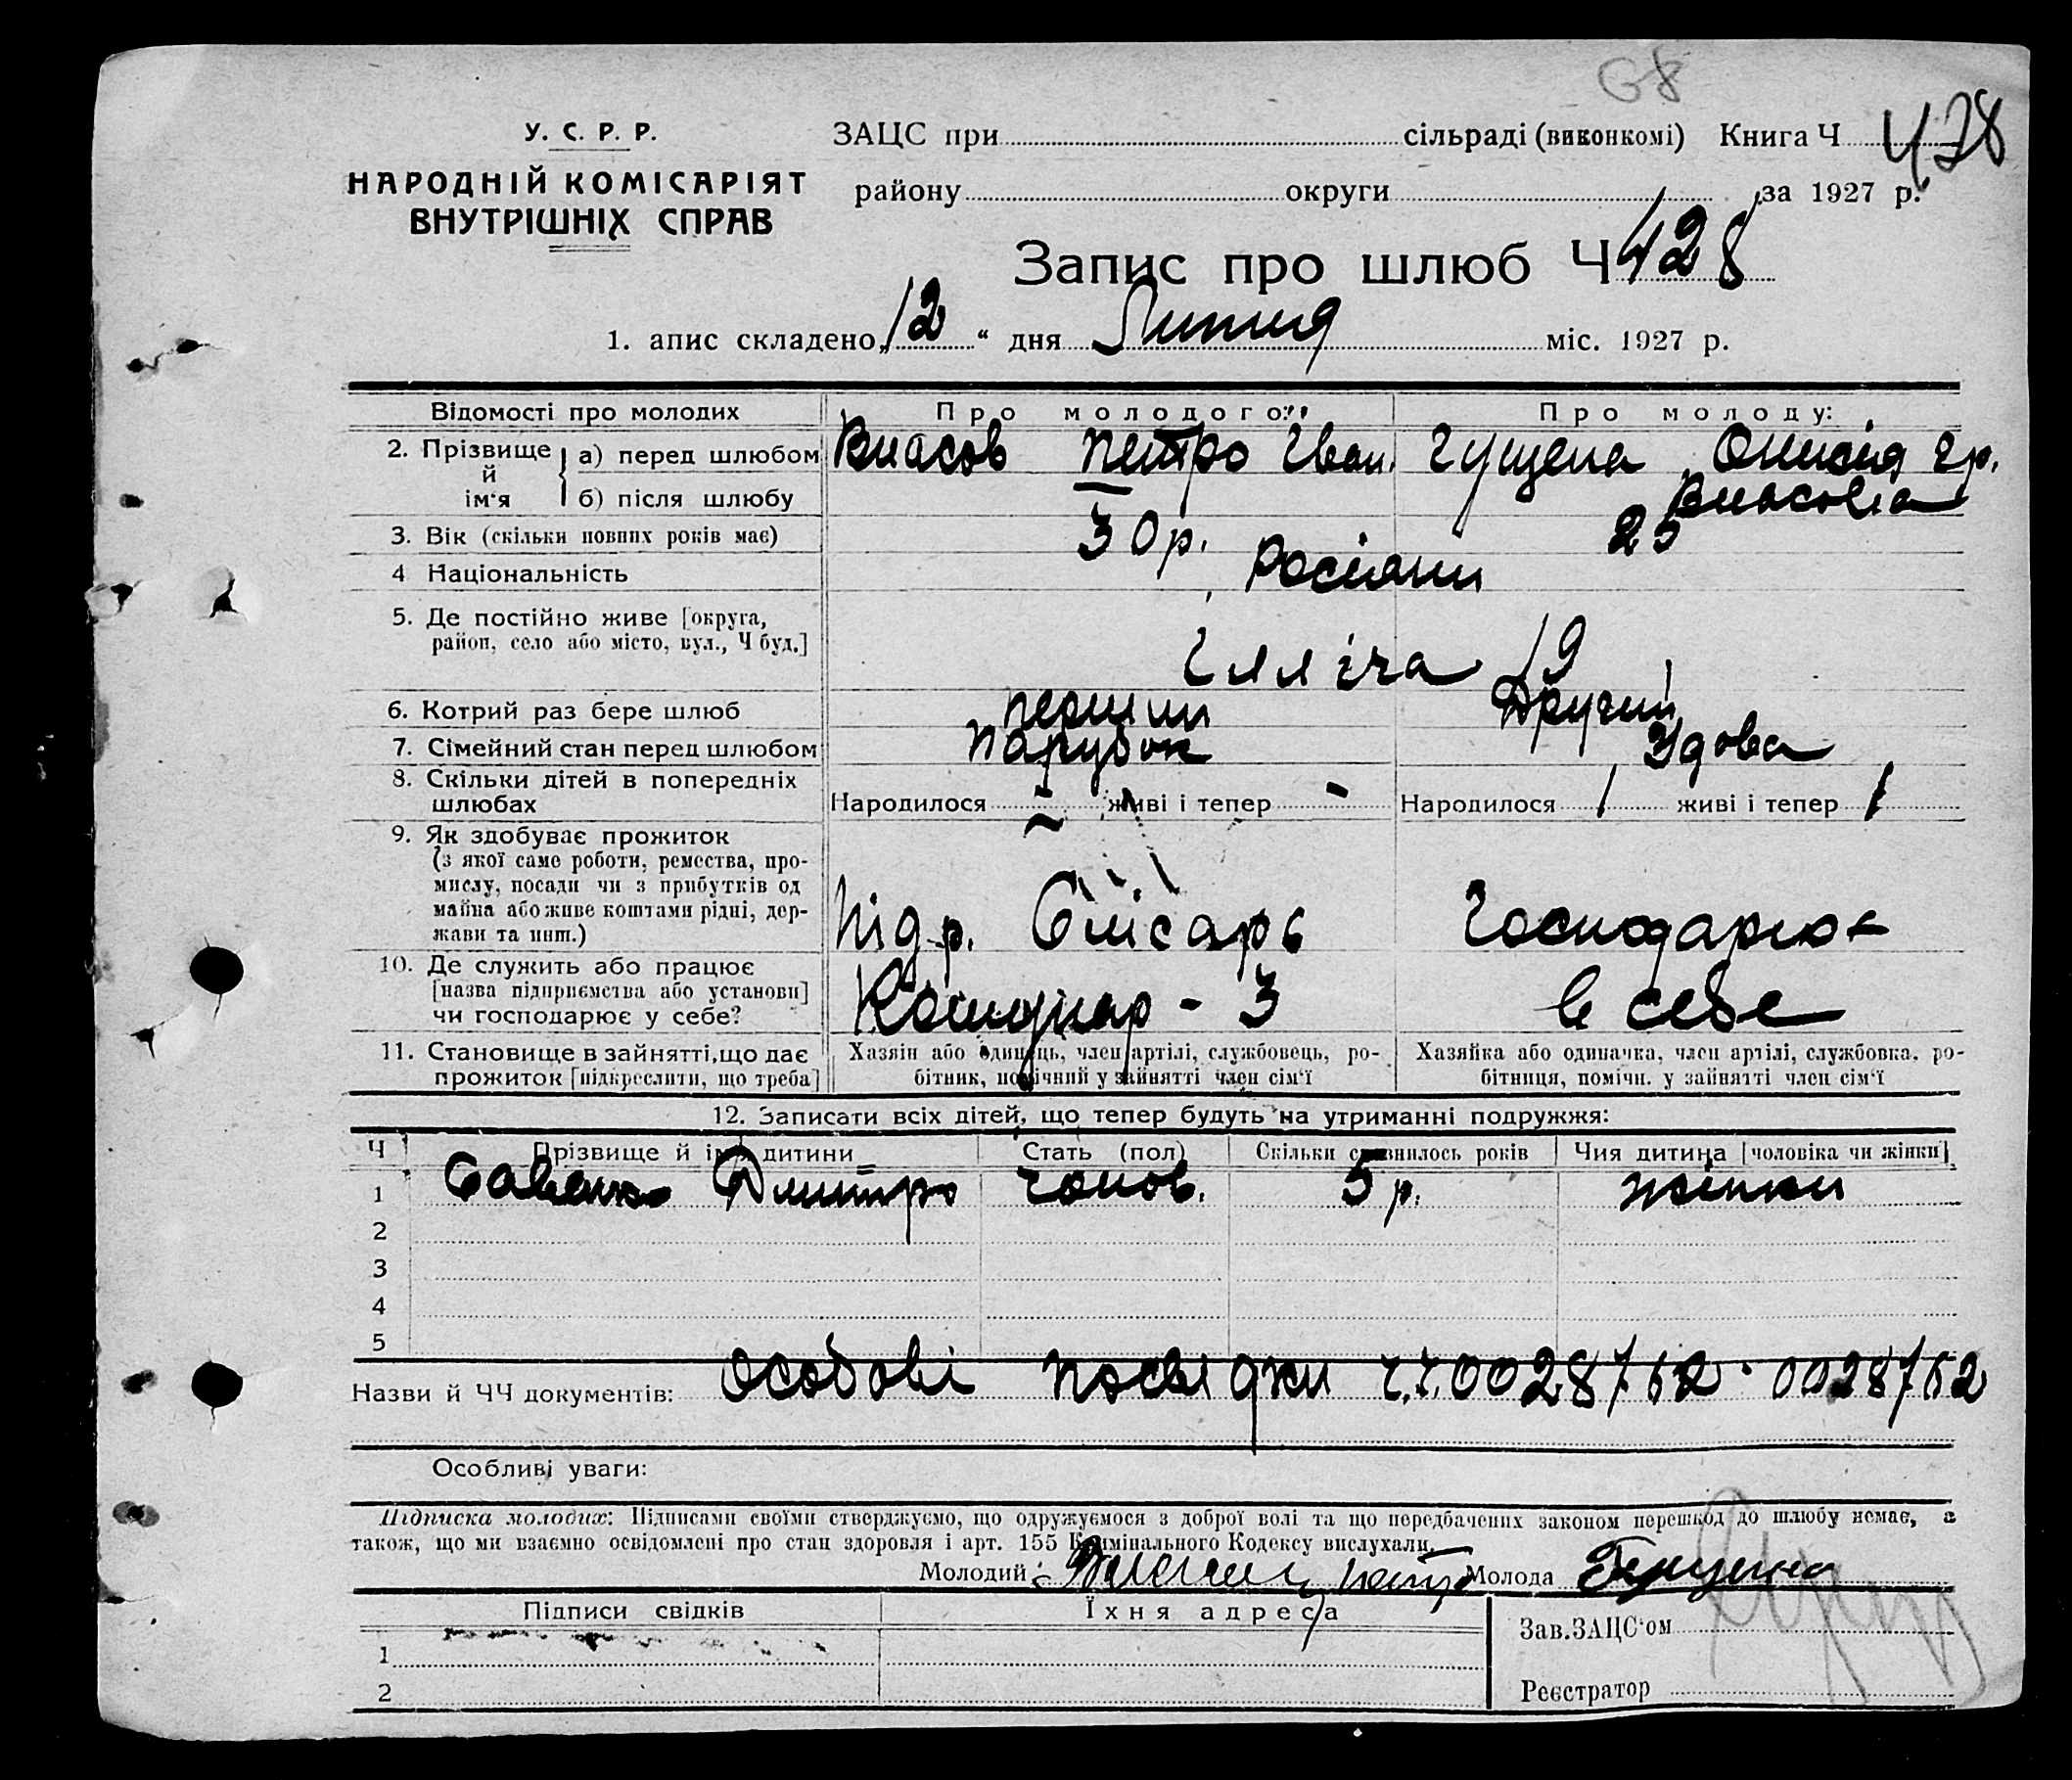 У. С. Р. Р.
НАРОДНІЙ КОМІСАРІЯТ
ВНУТРІШНІХ СПРАВ
ЗАЦС при сільраді (виконкомі) Книга Ч 428
району округи за 1927 р.
Запис про шлюб Ч 428
1. апис складено „12“ дня Липня міс. 1927 р.
Відомості про молодих Про молодого: Про молоду:
2. Прізвище й ім'я
а) перед шлюбом Власов Петро Іван. Гущена Онисія Гр.
б) після шлюбу Власова
3. Вік (скільки повних років має) 30 р. 25
4 Національність Росіяни
5. Де постійно живе [округа,
район, село або місто, вул., Ч буд.] Ілліча 19
6. Котрий раз бере шлюб перший Другий
7. Сімейний стан перед шлюбом парубок Удова
8. Скільки дітей в попередніх
шлюбах Народилося - живі і тепер - Народилося 1 живі і тепер 1
9. Як здобуває прожиток
(з якої саме роботи, ремества, про-
мислу, посади чи з прибутків од
майна або живе коштами рідні, дер-
жави та инш.) Підр. Слісарь Господарює
10. Де служить або працює
[назва підприємства або установи]
чи господарює у себе? в себе
11. Становище в зайнятті, що дає
прожиток [підкреслити, що треба]
Хазяїн або одинець, член артілі, службовець, ро-
бітник, помічний у зайнятті член сім'ї
Хазяйка або одиначка, член артілі, службовка, ро-
бітниця, помічн. у зайнятті член сім'ї
12. Записати всіх дітей, що тепер будуть на утриманні подружжя:
Ч Прізвище й ім'я дитини Стать (пол) Скільки сповнилось років Чия дитина [чоловіка чи жінки]
1 Савенко Дмитро чолов. 5 р. жінки
2
3
4
5
Назви й ЧЧ документів: Особові посвідки ч.ч. 0028762 · 0028762
Особливі уваги:
Підписка молодих: Підписами своїми стверджуємо, що одружуємося з доброї волі та що передбачених законом перешкод до шлюбу немає, а
також, що ми взаємно освідомлені про стан здоровля і арт. 155 Кримінального Кодексу вислухали.
Молодий Молода
Підписи свідків Їхня адреса
Зав. ЗАЦС'ом
1
2
Реєстратор